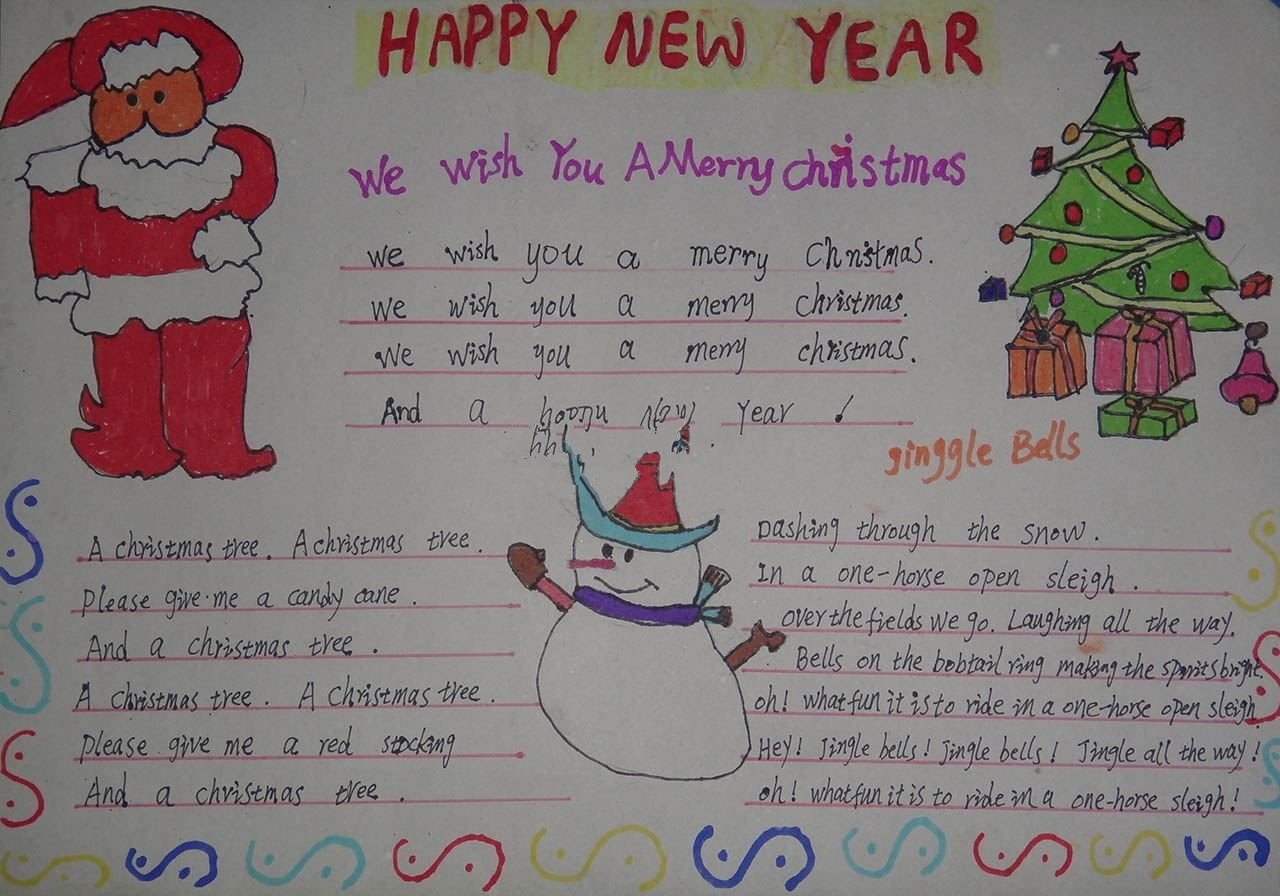 HAPPY NEW YEAR
We Wish You A Merry christmas
we wish you a merry Christmas.
we wish you a merry christmas.
We wish you a merry christmas.
And a year !
ginggle Bells
A christmas tree. A christmas tree.
please give me a candy cane.
And a christmas tree.
A christmas tree. A christmas tree.
please give me a red stocking
And a christmas tree.
Dashing through the snow.
In a one-horse open sleigh.
over the fields we go. Laughing all the way.
Bells on the bobtail ring making the spirits bright.
oh! what fun it is to ride in a one-horse open sleigh
Hey! Jingle bells! Jingle bells! Jingle all the way!
oh! what fun it is to ride in a one-horse sleigh!